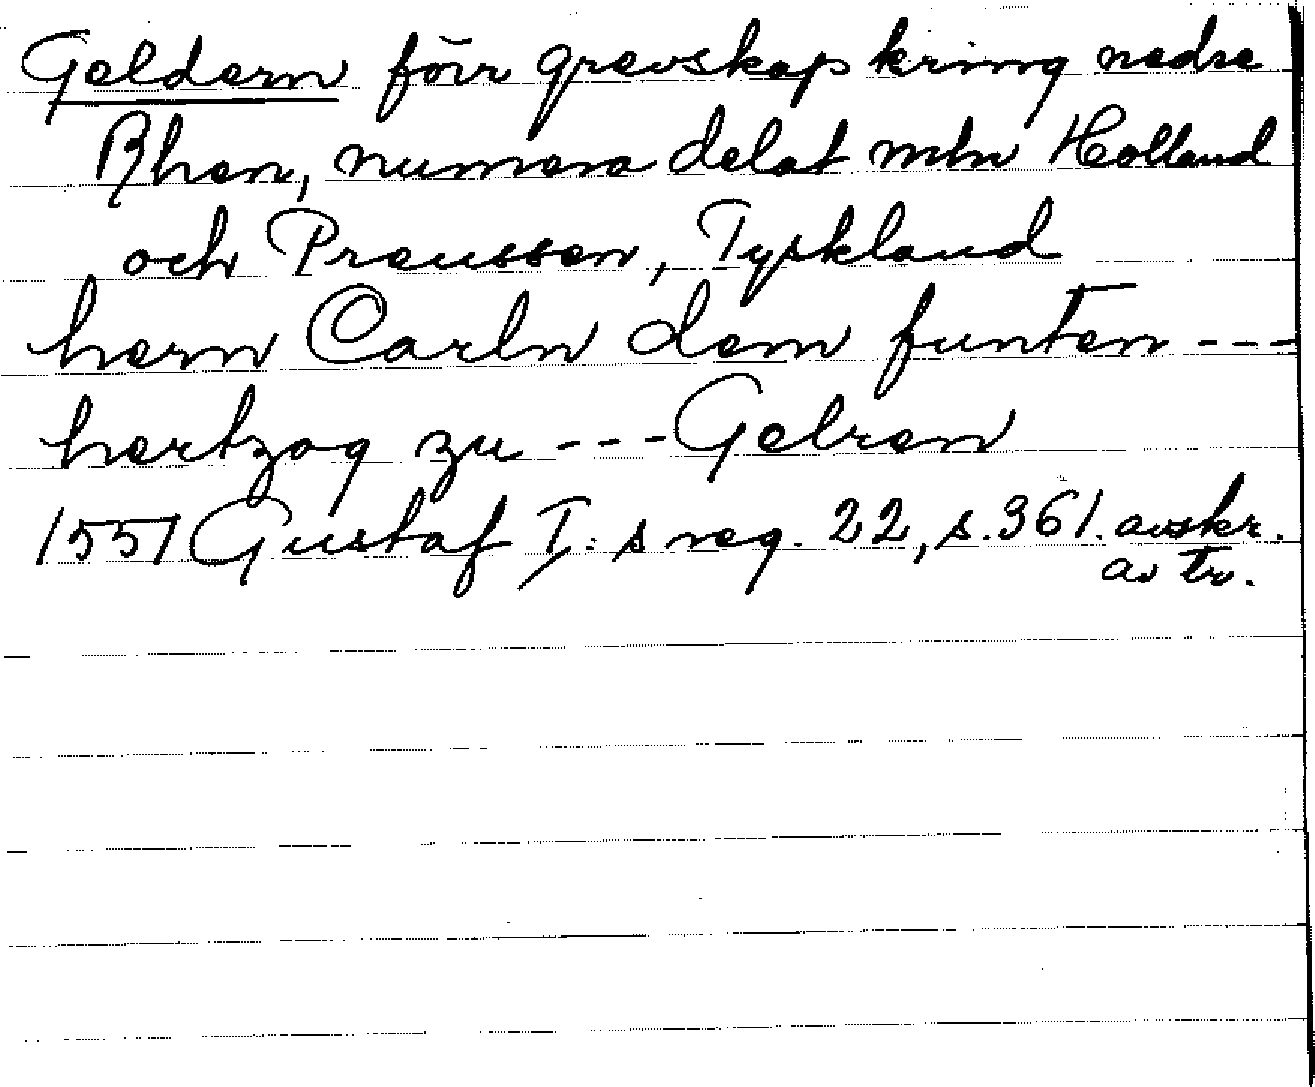 Geldern förr grevskap kring nedre
Rhen, numera delat mln Holland
och Preussen, Tyskland
hern Carln dem funten ---
hertzog zu --- Gelren
1551 Gustaf I:s reg. 22, s.361. avskr.
av tr.